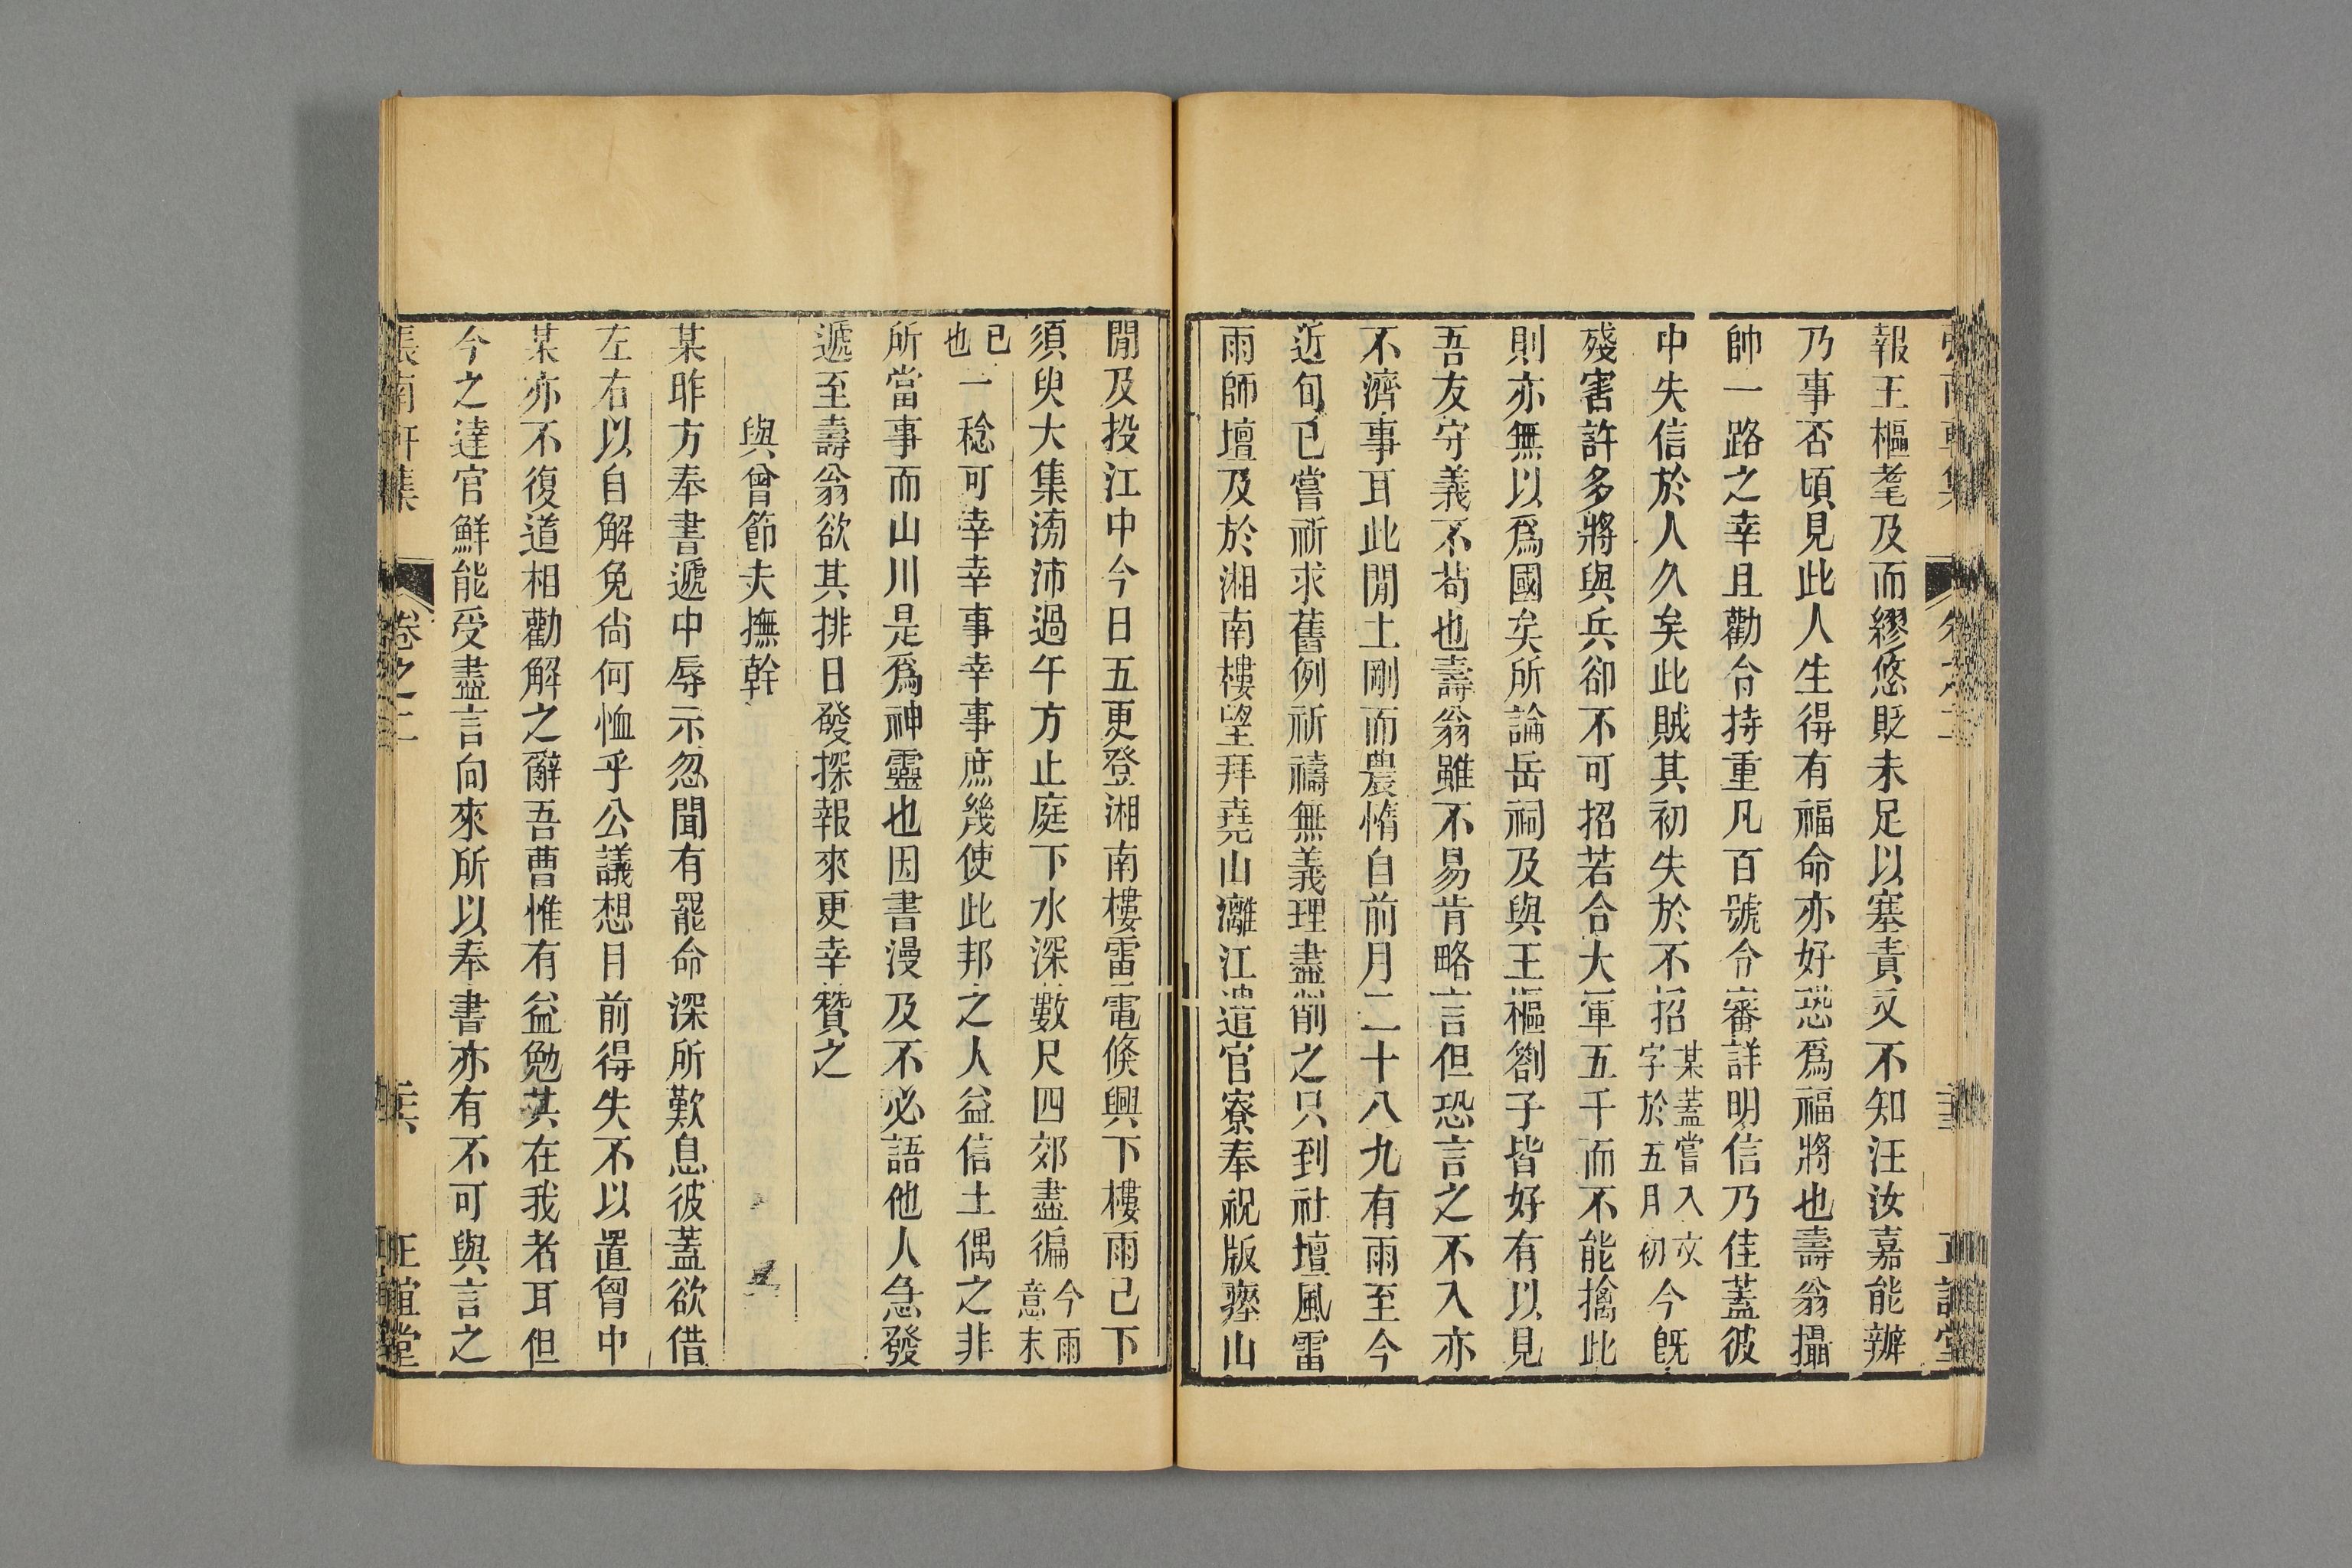 報王樞耄及而繆悠貶未足以塞責又不知汪汝嘉能辦
乃事否頃見此人生得有福命亦好恐爲福將也壽翁攝
帥一路之幸且勸令持重凡百號令審詳明信乃佳蓋彼
中失信於人久矣此賊其初失於不招某蓋嘗入文字於五月初今旣
殘害許多將與兵卻不可招若合大軍五千而不能擒此
則亦無以爲國矣所論岳祠及與王樞劄子皆好有以見
吾友守義不苟也壽翁雖不易肯略言但恐言之不入亦
不濟事耳此閒土剛而農惰自前月二十八九有雨至今
近旬已嘗祈求舊例祈禱無義理盡削之只到社壇風雷
雨師壇及於湘南樓望拜堯山灕江遣官寮奉祝版瘞山
閒及投江中今日五更登湘南樓雷電倏興下樓雨已下
須臾大集滂沛過午方止庭下水深數尺四郊盡徧今雨意未
已也一稔可幸幸事幸事庶幾使此邦之人益信土偶之非
所當事而山川是爲神靈也因書漫及不必語他人急發
遞至壽翁欲其排日發探報來更幸贊之
與曾節夫撫幹
某昨方奉書遞中辱示忽聞有罷命深所歎息彼蓋欲借
左右以自解免尙何恤乎公議想目前得失不以置胷中
某亦不復道相勸解之辭吾曹惟有益勉其在我者耳但
今之達官鮮能受盡言向來所以奉書亦有不可與言之
張南軒集 卷之二 正誼堂